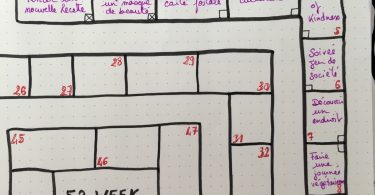 nouvelle recette
un masque
de beauté
carte postale
of
Kindness
5
Soirée
jeu de
société
6
28
29
26
27
30
Découvrir
un
endroit
7
31
32
Faire
une
journée
végétarienne
45
46
47
52 WEEK